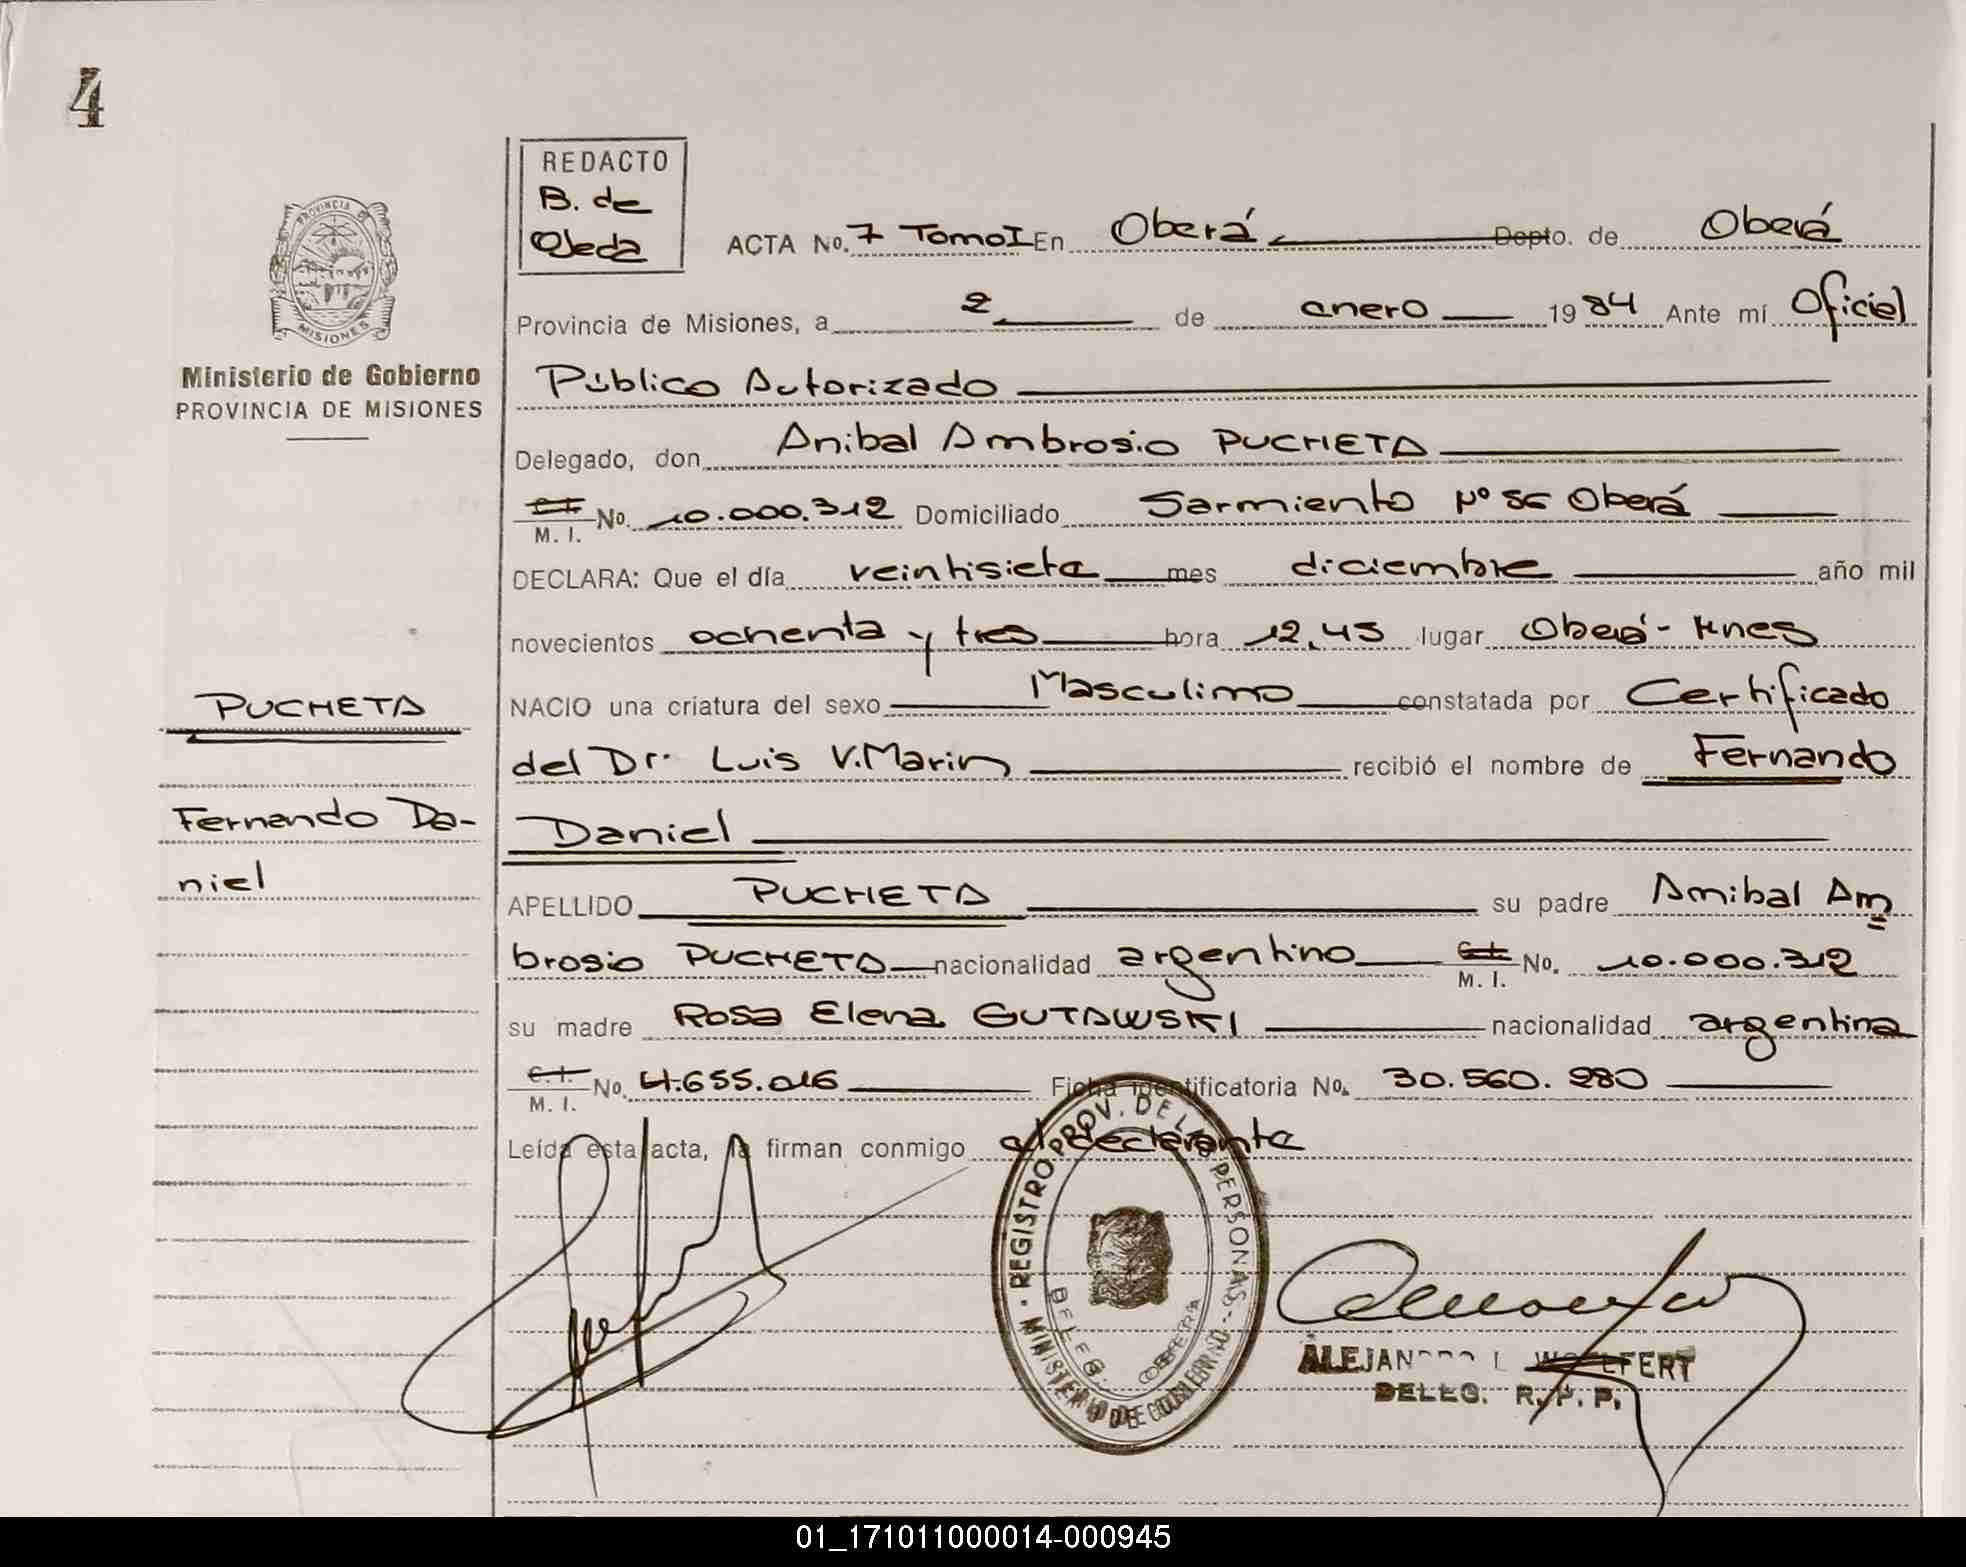 4
REDACTO
B. de
Ojeda
PROVINCIA DE
MISIONES
Ministerio de Gobierno
PROVINCIA DE MISIONES
ACTA No. 7 Tomo I En Oberá Depto. de Oberá
Provincia de Misiones, a 2 de enero 1984 Ante mí Oficial
Público Autorizado
Delegado, don Anibal Ambrosio PUCHETA
C.I. M. I. No. 10.000.312 Domiciliado Sarmiento Nº 56 Oberá
DECLARA: Que el día veintisiete mes diciembre año mil
novecientos ochenta y tres hora 12,45 lugar Oberá - Mnes
NACIO una criatura del sexo Masculino constatada por Certificado
del Dr. Luis V. Marin recibió el nombre de Fernando
Daniel
APELLIDO PUCHETA su padre Anibal Am
brosio PUCHETA nacionalidad argentino C.I. M. I. No. 10.000.312
su madre Rosa Elena GUTAWSKI nacionalidad argentina
C.I. M. I. No. 4.655.016 Ficha identificatoria No. 30.560.980
Leída esta acta, la firman conmigo el declarante
PUCHETA
Fernando Da-
niel
REGISTRO PROV. DE LAS PERSONAS
MINISTERIO DE GOBIERNO
DELEG.
ALEJANDRO L. WOELFERT
DELEG. R. P. P.
01_171011000014-000945